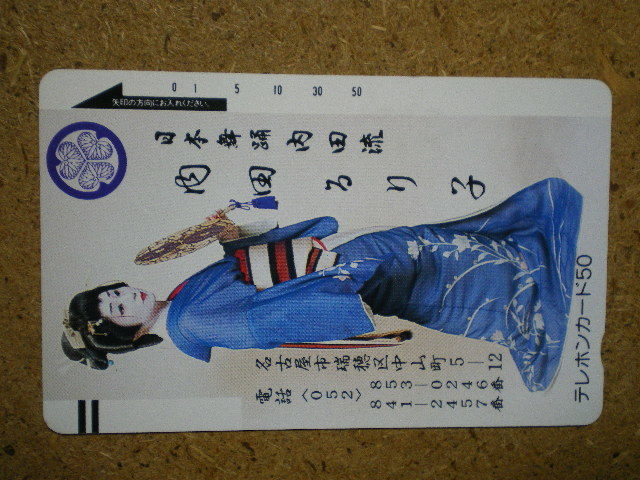 0 1 5 10 30 50
矢印の方向にお入れください。
日本舞踊内田流
内田るり子
名古屋市瑞穂区中山町5—12
電話〈052〉853—0246番
841—2457番
テレホンカード50